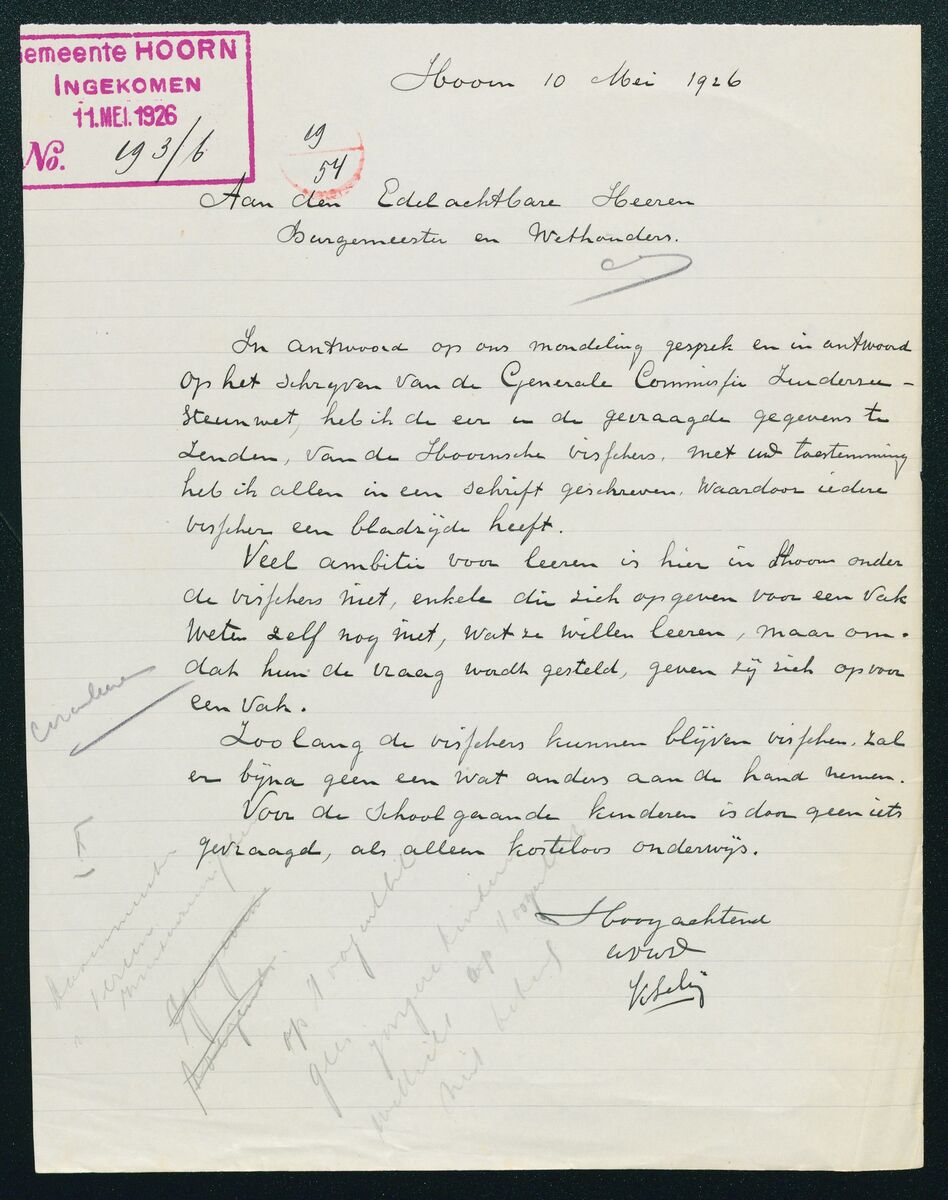 Gemeente HOORN
INGEKOMEN
11.MEI.1926
No. 193/6
19
54
Hoorn 10 Mei 1926
Aan den Edelachtbare Heeren
Burgemeester en Wethouders.
In antwoord op ons mondeling gesprek en in antwoord
op het schrijven van de Generale Commissie Zuiderzee-
steunwet, heb ik de eer u de gevraagde gegevens te
zenden, van de Hoornsche visschers. Met uwe toestemming
heb ik allen in een schrift geschreven. Waardoor iedere
visscher een bladzijde heeft.
Veel ambitie voor leeren is hier in Hoorn onder
de visschers niet, enkele die zich opgeven voor een vak
weten zelf nog niet, wat ze willen leeren, maar om-
dat hun de vraag wordt gesteld, geven zij zich op voor
een vak.
Zoolang de visschers kunnen blijven visschen, zal
er bijna geen een wat anders aan de hand nemen.
Voor de schoolgaande kinderen is door geen iets
gevraagd, als alleen kosteloos onderwijs.
Hoogachtend
op 't oogenblik
geen jongere kinderen
op 't oogenblik
niet bekend